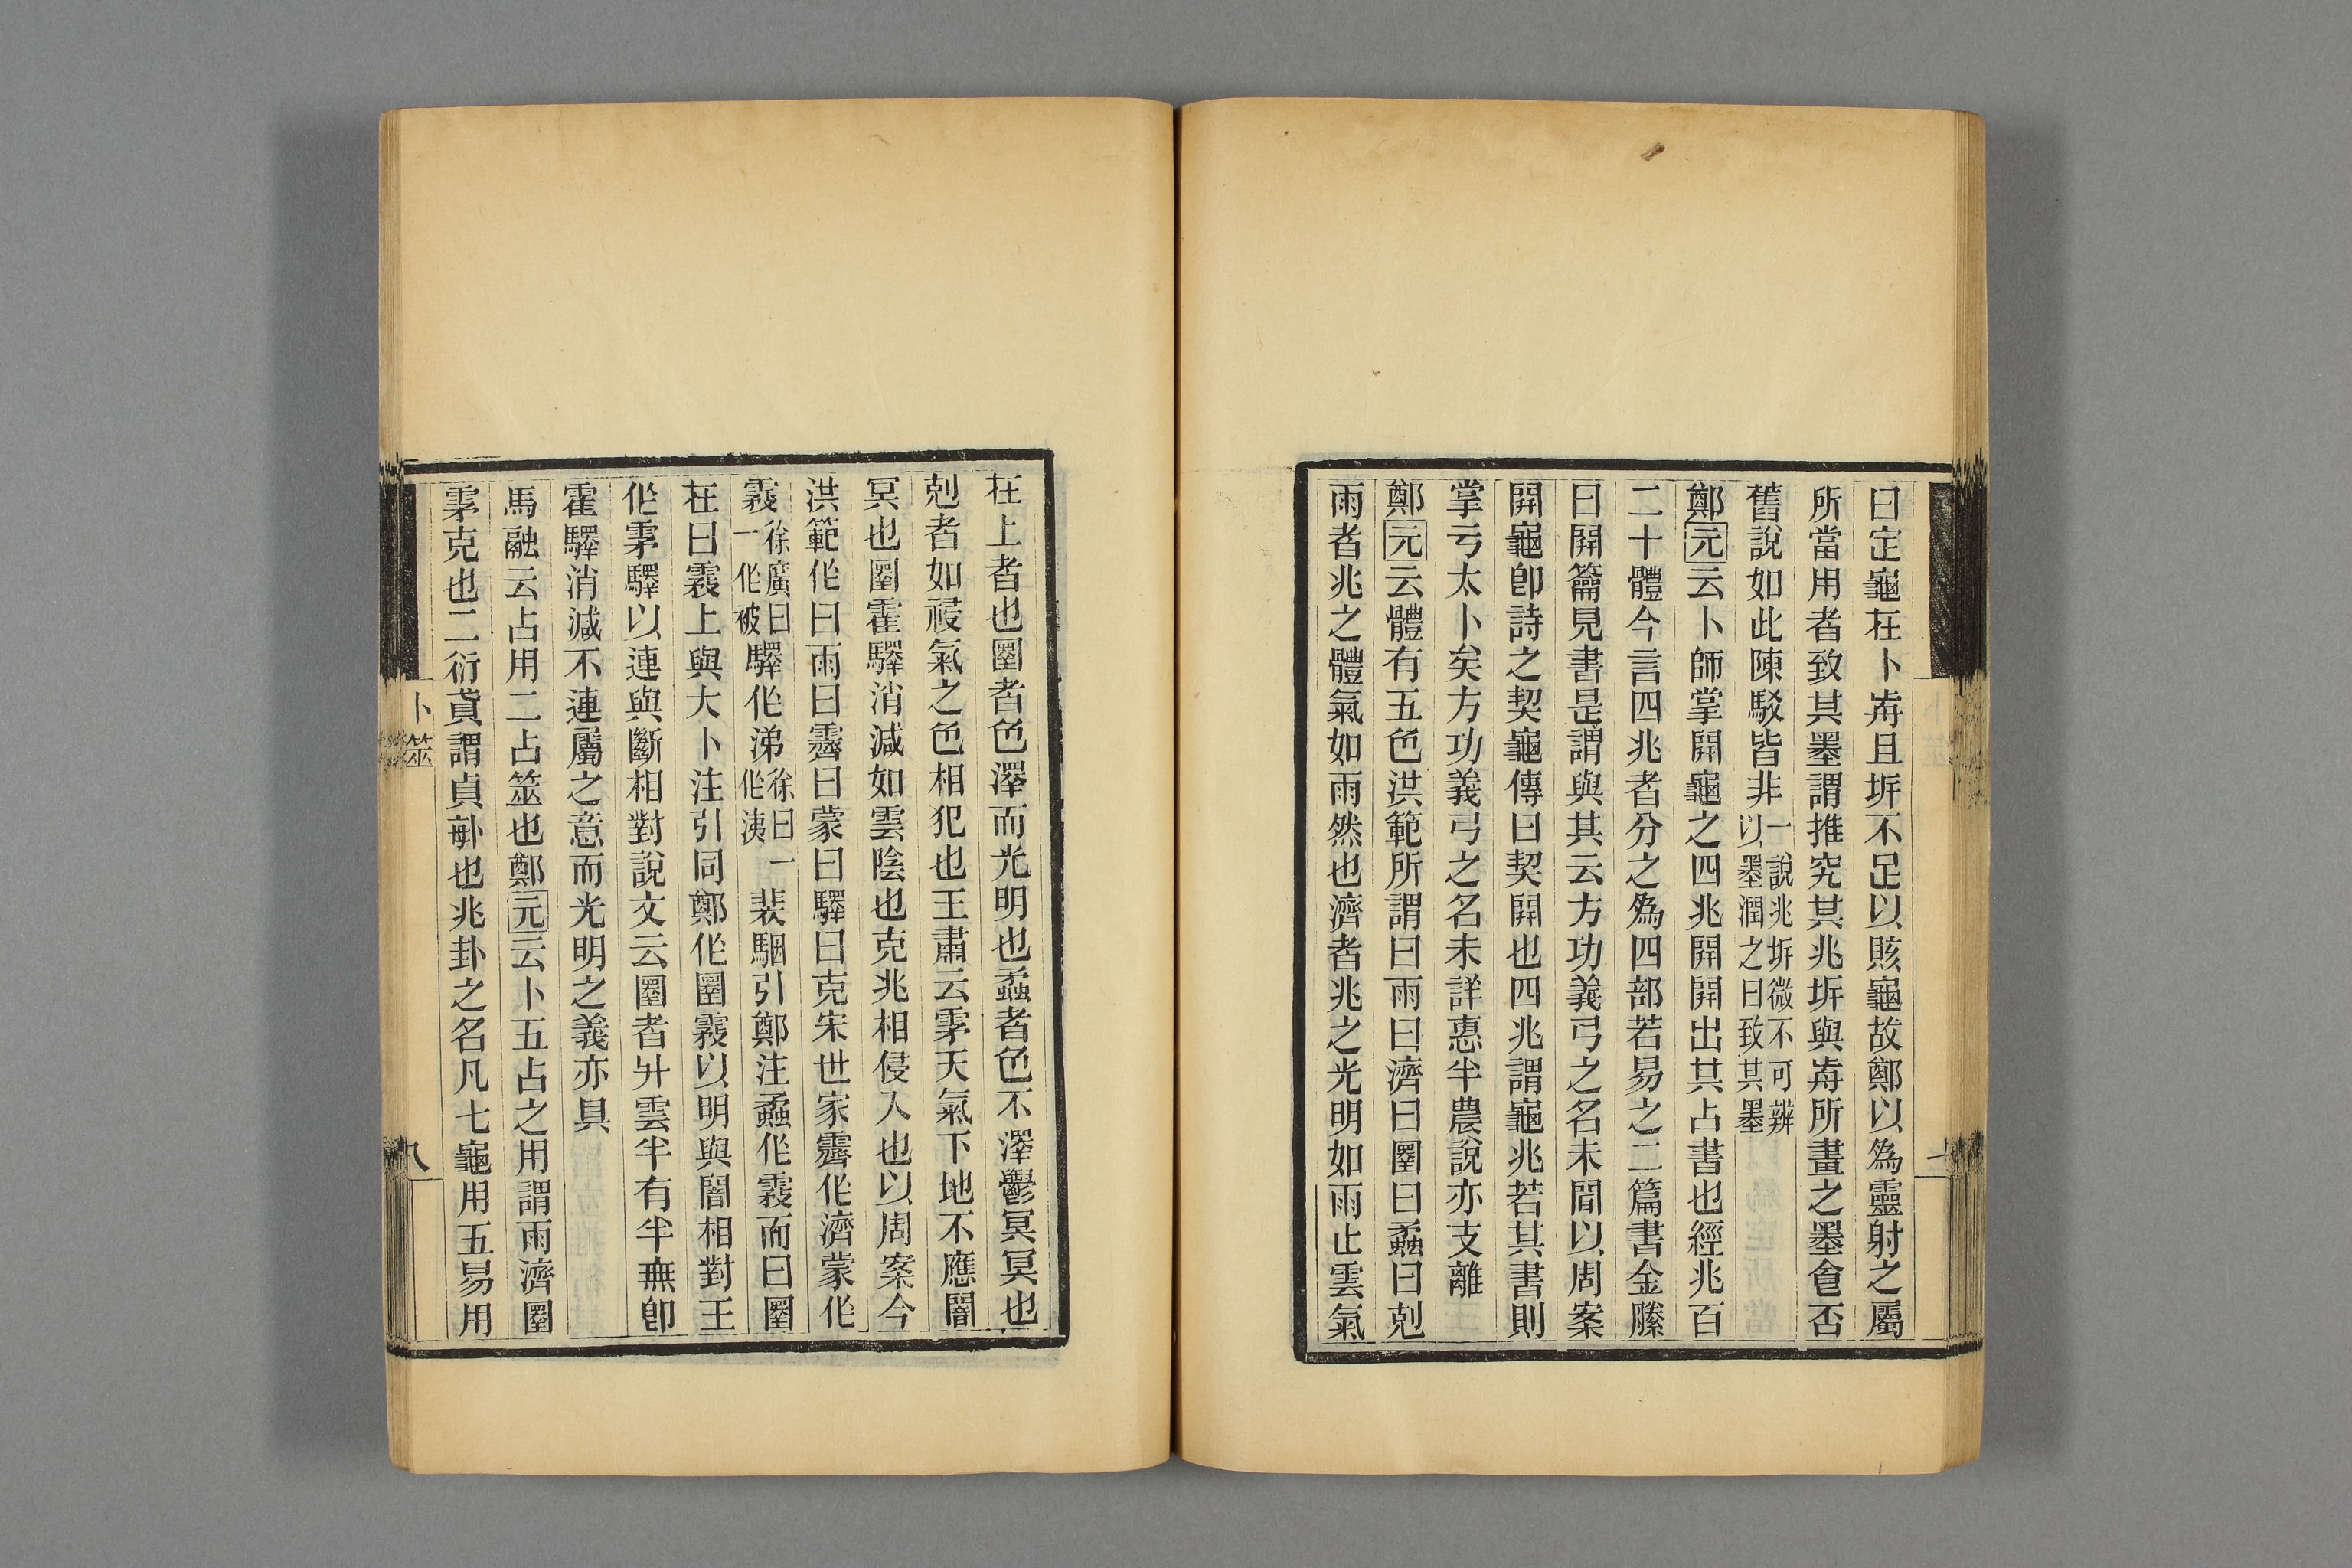 曰定龜在卜歬且坼不足以賅龜故鄭以爲靈射之屬
所當用者致其墨謂推究其兆坼與歬所畫之墨合否
舊說如此陳駁皆非一說兆坼微不可辨以墨潤之曰致其墨
鄭元云卜師掌開龜之四兆開開出其占書也經兆百
二十體今言四兆者分之爲四部若易之二篇書金縢
曰開籥見書是謂與其云方功義弓之名未聞以周案
開龜卽詩之契龜傳曰契開也四兆謂龜兆若其書則
掌亏太卜矣方功義弓之名未詳惠半農說亦支離
鄭元云體有五色洪範所謂曰雨曰濟曰圛曰蟊曰剋
雨者兆之體氣如雨然也濟者兆之光明如雨止雲氣
在上者也圛者色澤而光明也蟊者色不澤鬱冥冥也
剋者如祲氣之色相犯也王肅云雺天氣下地不應闇
冥也圛霍驛消減如雲陰也克兆相侵入也以周案今
洪範作曰雨曰霽曰蒙曰驛曰克宋世家霽作濟蒙作
霧徐廣曰一作被驛作涕徐曰一作洟裴駰引鄭注蟊作霧而曰圛
在曰霧上與大卜注引同鄭作圛霧以明與闇相對王
作雺驛以連與斷相對說文云圛者升雲半有半無卽
霍驛消減不連屬之意而光明之義亦具
馬融云占用二占筮也鄭元云卜五占之用謂雨濟圛
雺克也二衍貣謂貞𠧩也兆卦之名凡七龜用五易用
卜筮
八